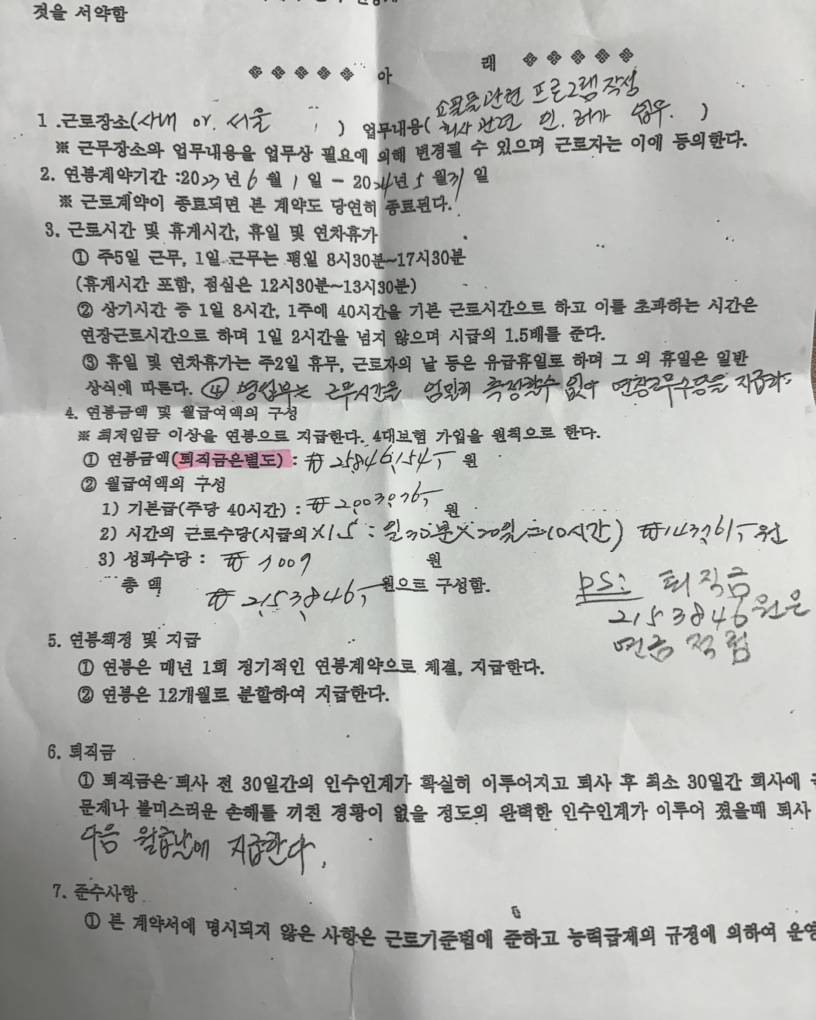 것을 서약함
아 래
쇼핑몰관련 프로그램작성
1 .근로장소(사내 or. 서울 ) 업무내용( 회사 관련 인.허가 업무. )
※ 근무장소와 업무내용을 업무상 필요에 의해 변경될 수 있으며 근로자는 이에 동의한다.
2. 연봉계약기간 :2023년 6 월 1 일 - 2024년 5 월31 일
※ 근로계약이 종료되면 본 계약도 당연히 종료된다.
3. 근로시간 및 휴게시간, 휴일 및 연차휴가
① 주5일 근무, 1일 근무는 평일 8시30분~17시30분
(휴게시간 포함, 점심은 12시30분~13시30분)
② 상기시간 중 1일 8시간, 1주에 40시간을 기본 근로시간으로 하고 이를 초과하는 시간은
연장근로시간으로 하며 1일 2시간을 넘지 않으며 시급의 1.5배를 준다.
③ 휴일 및 연차휴가는 주2일 휴무, 근로자의 날 등은 유급휴일로 하며 그 외 휴일은 일반
상식에 따른다. ④ 영업부는 근무시간을 엄밀히 측정할수 없어 연장근무수당을 지급하
4. 연봉금액 및 월급여액의 구성
※ 최저임금 이상을 연봉으로 지급한다. 4대보험 가입을 원칙으로 한다.
① 연봉금액(퇴직금은별도) : ₩ 25846,154,- 원
② 월급여액의 구성
1) 기본급(주당 40시간) : ₩ 2,003,076,- 원
2) 시간의 근로수당(시급의 X1.5 : 일30분X20일=10시간) ₩143,761,- 원
3) 성과수당 : ₩ 7009 원
총 액 ₩ 2,153,846,- 원으로 구성함.
PS: 퇴직금
2153846원은
연금 적립
5. 연봉책정 및 지급
① 연봉은 매년 1회 정기적인 연봉계약으로 체결, 지급한다.
② 연봉은 12개월로 분할하여 지급한다.
6. 퇴직금
① 퇴직금은 퇴사 전 30일간의 인수인계가 확실히 이루어지고 퇴사 후 최소 30일간 회사에
문제나 불미스러운 손해를 끼친 경황이 없을 정도의 완력한 인수인계가 이루어 졌을때 퇴사
다음 월급날에 지급한다.
7. 준수사항
① 본 계약서에 명시되지 않은 사항은 근로기준법에 준하고 능력급제의 규정에 의하여 운영